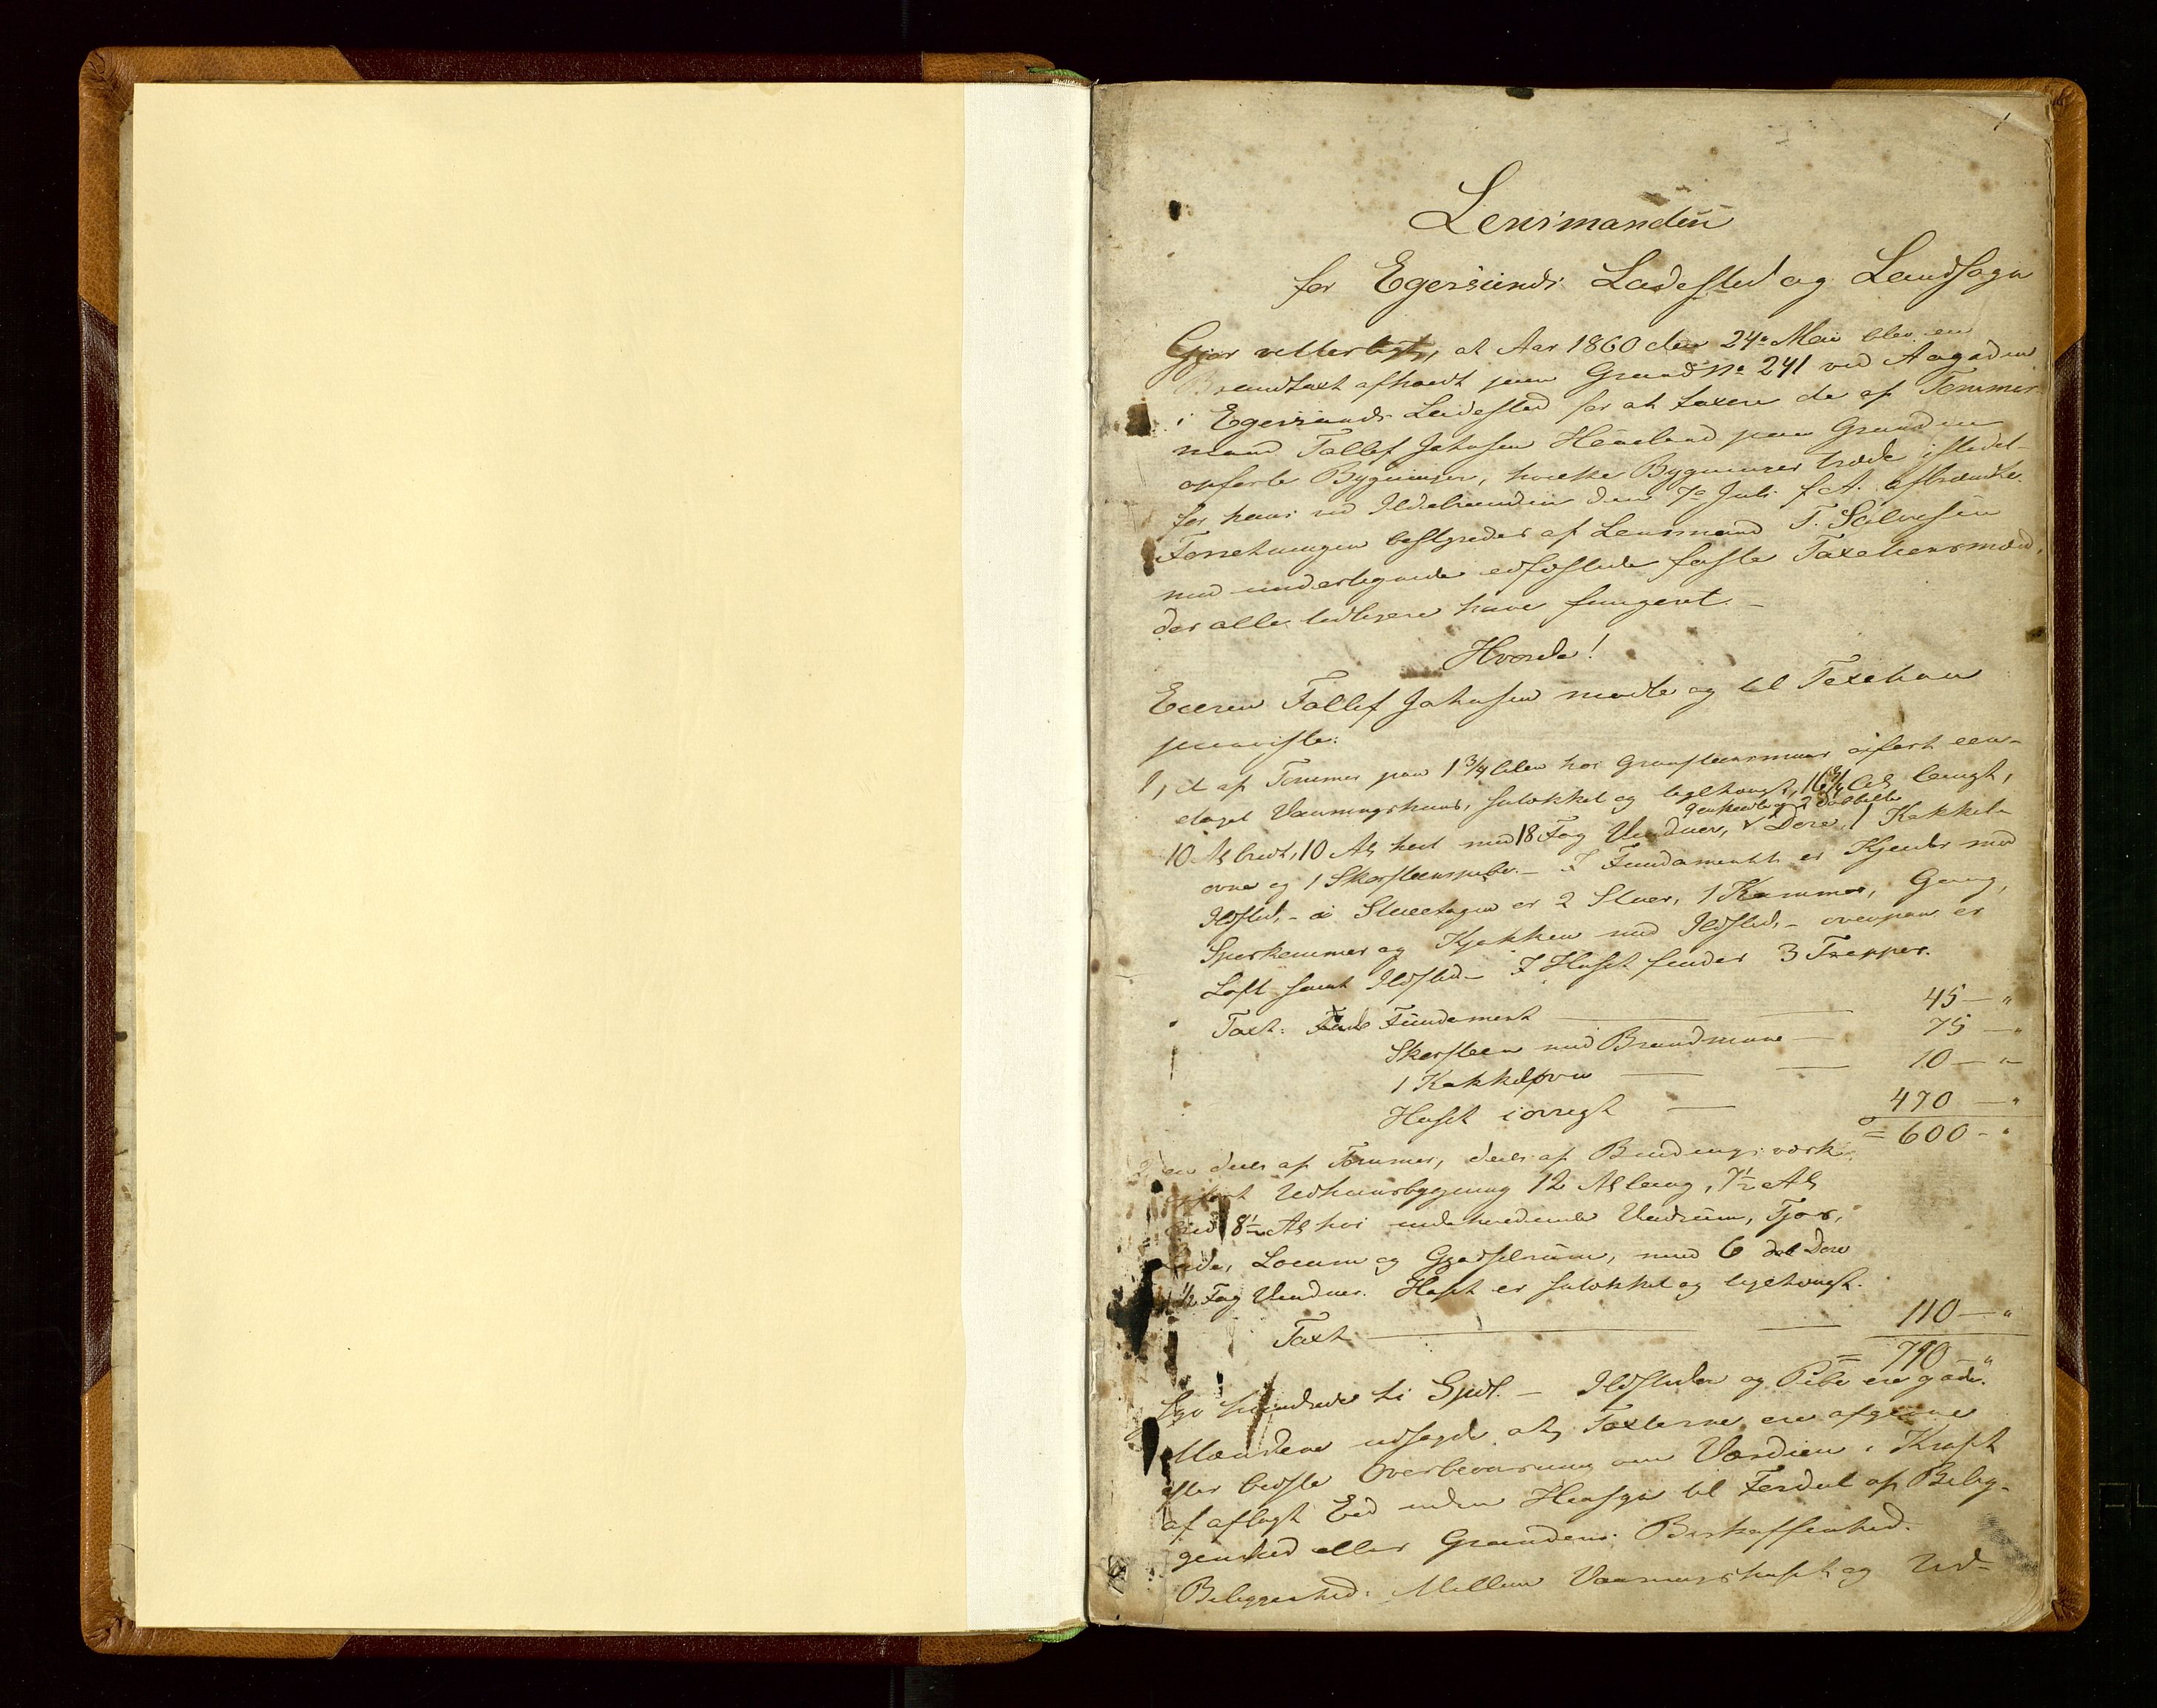 1
Lensmanden
for Egersunds Ladested og Landsogn
Gjør vitterligt, at Aar 1860 den 24de Mai blev en
Brandtaxt afholdt paa Grund No 241 ved Aagaden
i Egersunds Ladested for at taxere de af Tømmer-
mand Tollef Johnsen Hæveland paa Grunden
opførte Bygninger, hvilke Bygninger træde istedet-
for hans ved Ildebranden den 7de Juli f. A. afbrændte.
Forretningen bestyredes af Lensmand T. Salvesen
med undertegnede edfæstede faste Taxationsmænd,
der alle tidligere have fungeret. –
Hvorda!
Eieren Tollef Johnsen mødte og til Taxation
paaviste:
1, et af Tømmer paa 1 3/4 Alen høi Graasteensmuur opført een-
etages Vaaningshuus, sulokket og teglhængt, 16 3/4 Al. langt,
10 Al bredt, 10 Al høit med 18 Fag Vinduer, 9 enkelte og 2 dobbelte Døre, 1 Kakkel-
ovn og 1 Skorsteenspibe. – I Fundamentet er Kjelder med
Ildsted, – i Stueetagen er 2 Stuer, 1 Kammer, Gang,
Spiskammer og Kjøkken med Ildsted, – ovenpaa er
Loft samt Ildsted – I Huset findes 3 Trapper.
Taxt: Fundament — 45 – "
Skorsteen med Brandmuur — 75 – "
1 Kakkelovn — 10 – "
Huset iøvrigt — 470 – "
= 600 – "
2, en deels af Tømmer, deels af Bindingsværk
opført Udhuusbygning 12 Al lang, 7 1/2 Al
bred 8 1/2 Al høi indeholdende Vedrum, Fjøs,
Lade, Locum og Gjødselrum, med 6 Døre
1 1/2 Fag Vinduer. Huset er sulokket og teglhængt.
Taxt — 110 – "
= 710 – "
Syv hundrede ti Spd. – Ildsteder og Pibe ere gode.
Mændene udsagde, at Taxterne ere afgivne
efter bedste Overbeviisning om Værdien i Kraft
af aflagt Eed uden Hensyn til Fordeel af Belig-
genhed eller Grundens Beskaffenhed.
Beliggenhed: Mellem Vaaningshuset og Ud-